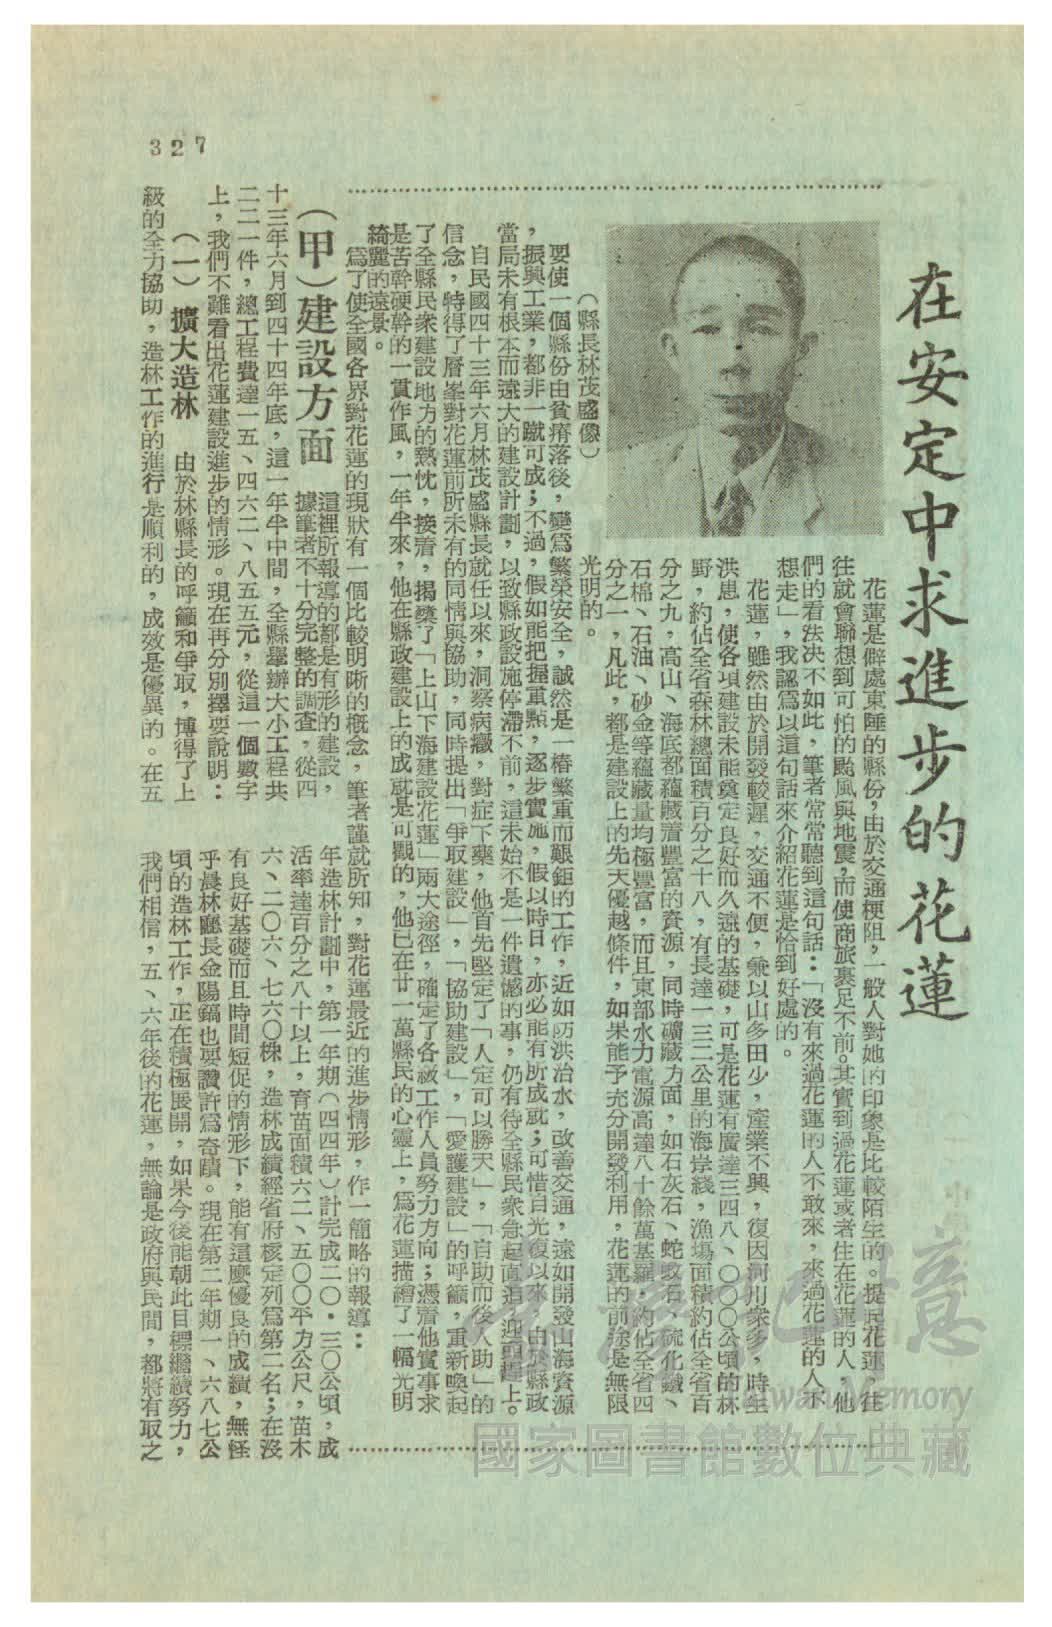 在安定中求進步的花蓮
花蓮是僻處東陲的縣份，由於交通梗阻，一般人對她的印象是比較陌生的。提民花蓮，往
往就會聯想到可怕的颱風與地震，而使商旅裹足不前。其實到過花蓮或者住在花蓮的人，他
們的看法決不如此，筆者常常聽到這句話：「沒有來過花蓮的人不敢來，來過花蓮的人不
想走」，我認爲以這句話來介紹花蓮是恰到好處的。
花蓮，雖然由於開發較遲，交通不便，兼以山多田少，產業不興，復因河川衆多，時生
洪患，使各項建設未能奠定良好而久遠的基礎，可是花蓮有廣達三四八、〇〇〇公頃的林
野，約佔全省森林總面積百分之十八，有長達一三二公里的海岸綫，漁塲面積約佔全省百
分之九，高山、海底都蘊藏着豐富的資源，同時礦藏方面，如石灰石、蛇紋石、硫化鐵、
石棉、石油、砂金等蘊藏量均極豐富，而且東部水力電源高達八十餘萬基羅，約佔全省四
分之一，凡此，都是建設上的先天優越條件，如果能予充分開發利用，花蓮的前途是無限
光明的。
（縣長林茂盛像）
要使一個縣份由貧瘠落後，變爲繁榮安全，誠然是一樁繁重而艱鉅的工作，近如防洪治水，改善交通，遠如開發山海資源
，振興工業，都非一蹴可成；不過，假如能把握重點，逐步實施，假以時日，亦必能有所成就；可惜自光復以來，由於縣政
當局未有根本而遠大的建設計劃，以致縣政設施停滯不前，這未始不是一件遺憾的事，仍有待全縣民衆急起直追，迎頭趕上。
自民國四十三年六月林茂盛縣長就任以來，洞察病癥，對症下藥，他首先堅定了「人定可以勝天」，「自助而後人助」的
信念，特得了層峯對花蓮前所未有的同情與協助，同時提出「爭取建設」，「協助建設」，「愛護建設」的呼籲，重新喚起
了全縣民衆建設地方的熱忱，接着，揭櫫了「上山下海建設花蓮」兩大途徑，確定了各級工作人員努力方向；憑着他實事求
是苦幹硬幹的一貫作風，一年半來，他在縣政建設上的成就是可觀的，他已在廿一萬縣民的心靈上，爲花蓮描繪了一幅光明
綺麗的遠景。
爲了使全國各界對花蓮的現狀有一個比較明晰的概念，筆者謹就所知，對花蓮最近的進步情形，作一簡略的報導：
（甲）建設方面
這裡所報導的都是有形的建設，
據筆者不十分完整的調查，從四
十三年六月到四十四年底，這一年半中間，全縣舉辦大小工程共
二二一件，總工程費達一五、四六二、八五五元，從這一個數字
上，我們不難看出花蓮建設進步的情形。現在再分別擇要說明：
（一）擴大造林　由於林縣長的呼籲和爭取，博得了上
級的全力協助，造林工作的進行是順利的，成效是優異的。在五
年造林計劃中，第一年期（四四年）計完成二〇・三〇公頃，成
活率達百分之八十以上，育苗面積六二、五〇〇平方公尺，苗木
六、二〇六、七六〇株，造林成績經省府核定列爲第二名；在沒
有良好基礎而且時間短促的情形下，能有這麼優良的成績，無怪
乎農林廳長金陽鎬也要讚許爲奇蹟。現在第二年期一、六八七公
頃的造林工作，正在積極展開，如果今後能朝此目標繼續努力，
我們相信，五、六年後的花蓮，無論是政府與民間，都將有取之
327
臺灣記憶
Taiwan Memory
國家圖書館數位典藏